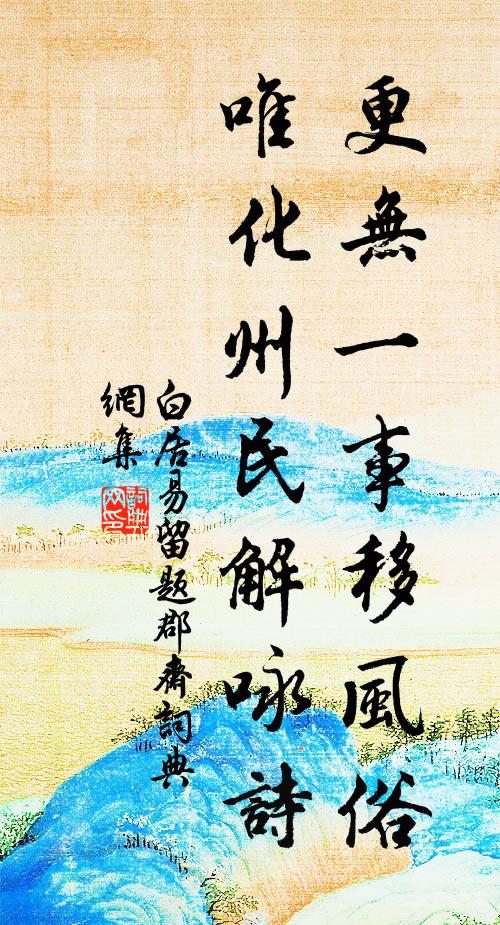 更無一事移風俗
唯化州民解咏詩
白居易留題郡齋詞典
網集
詞典
网印